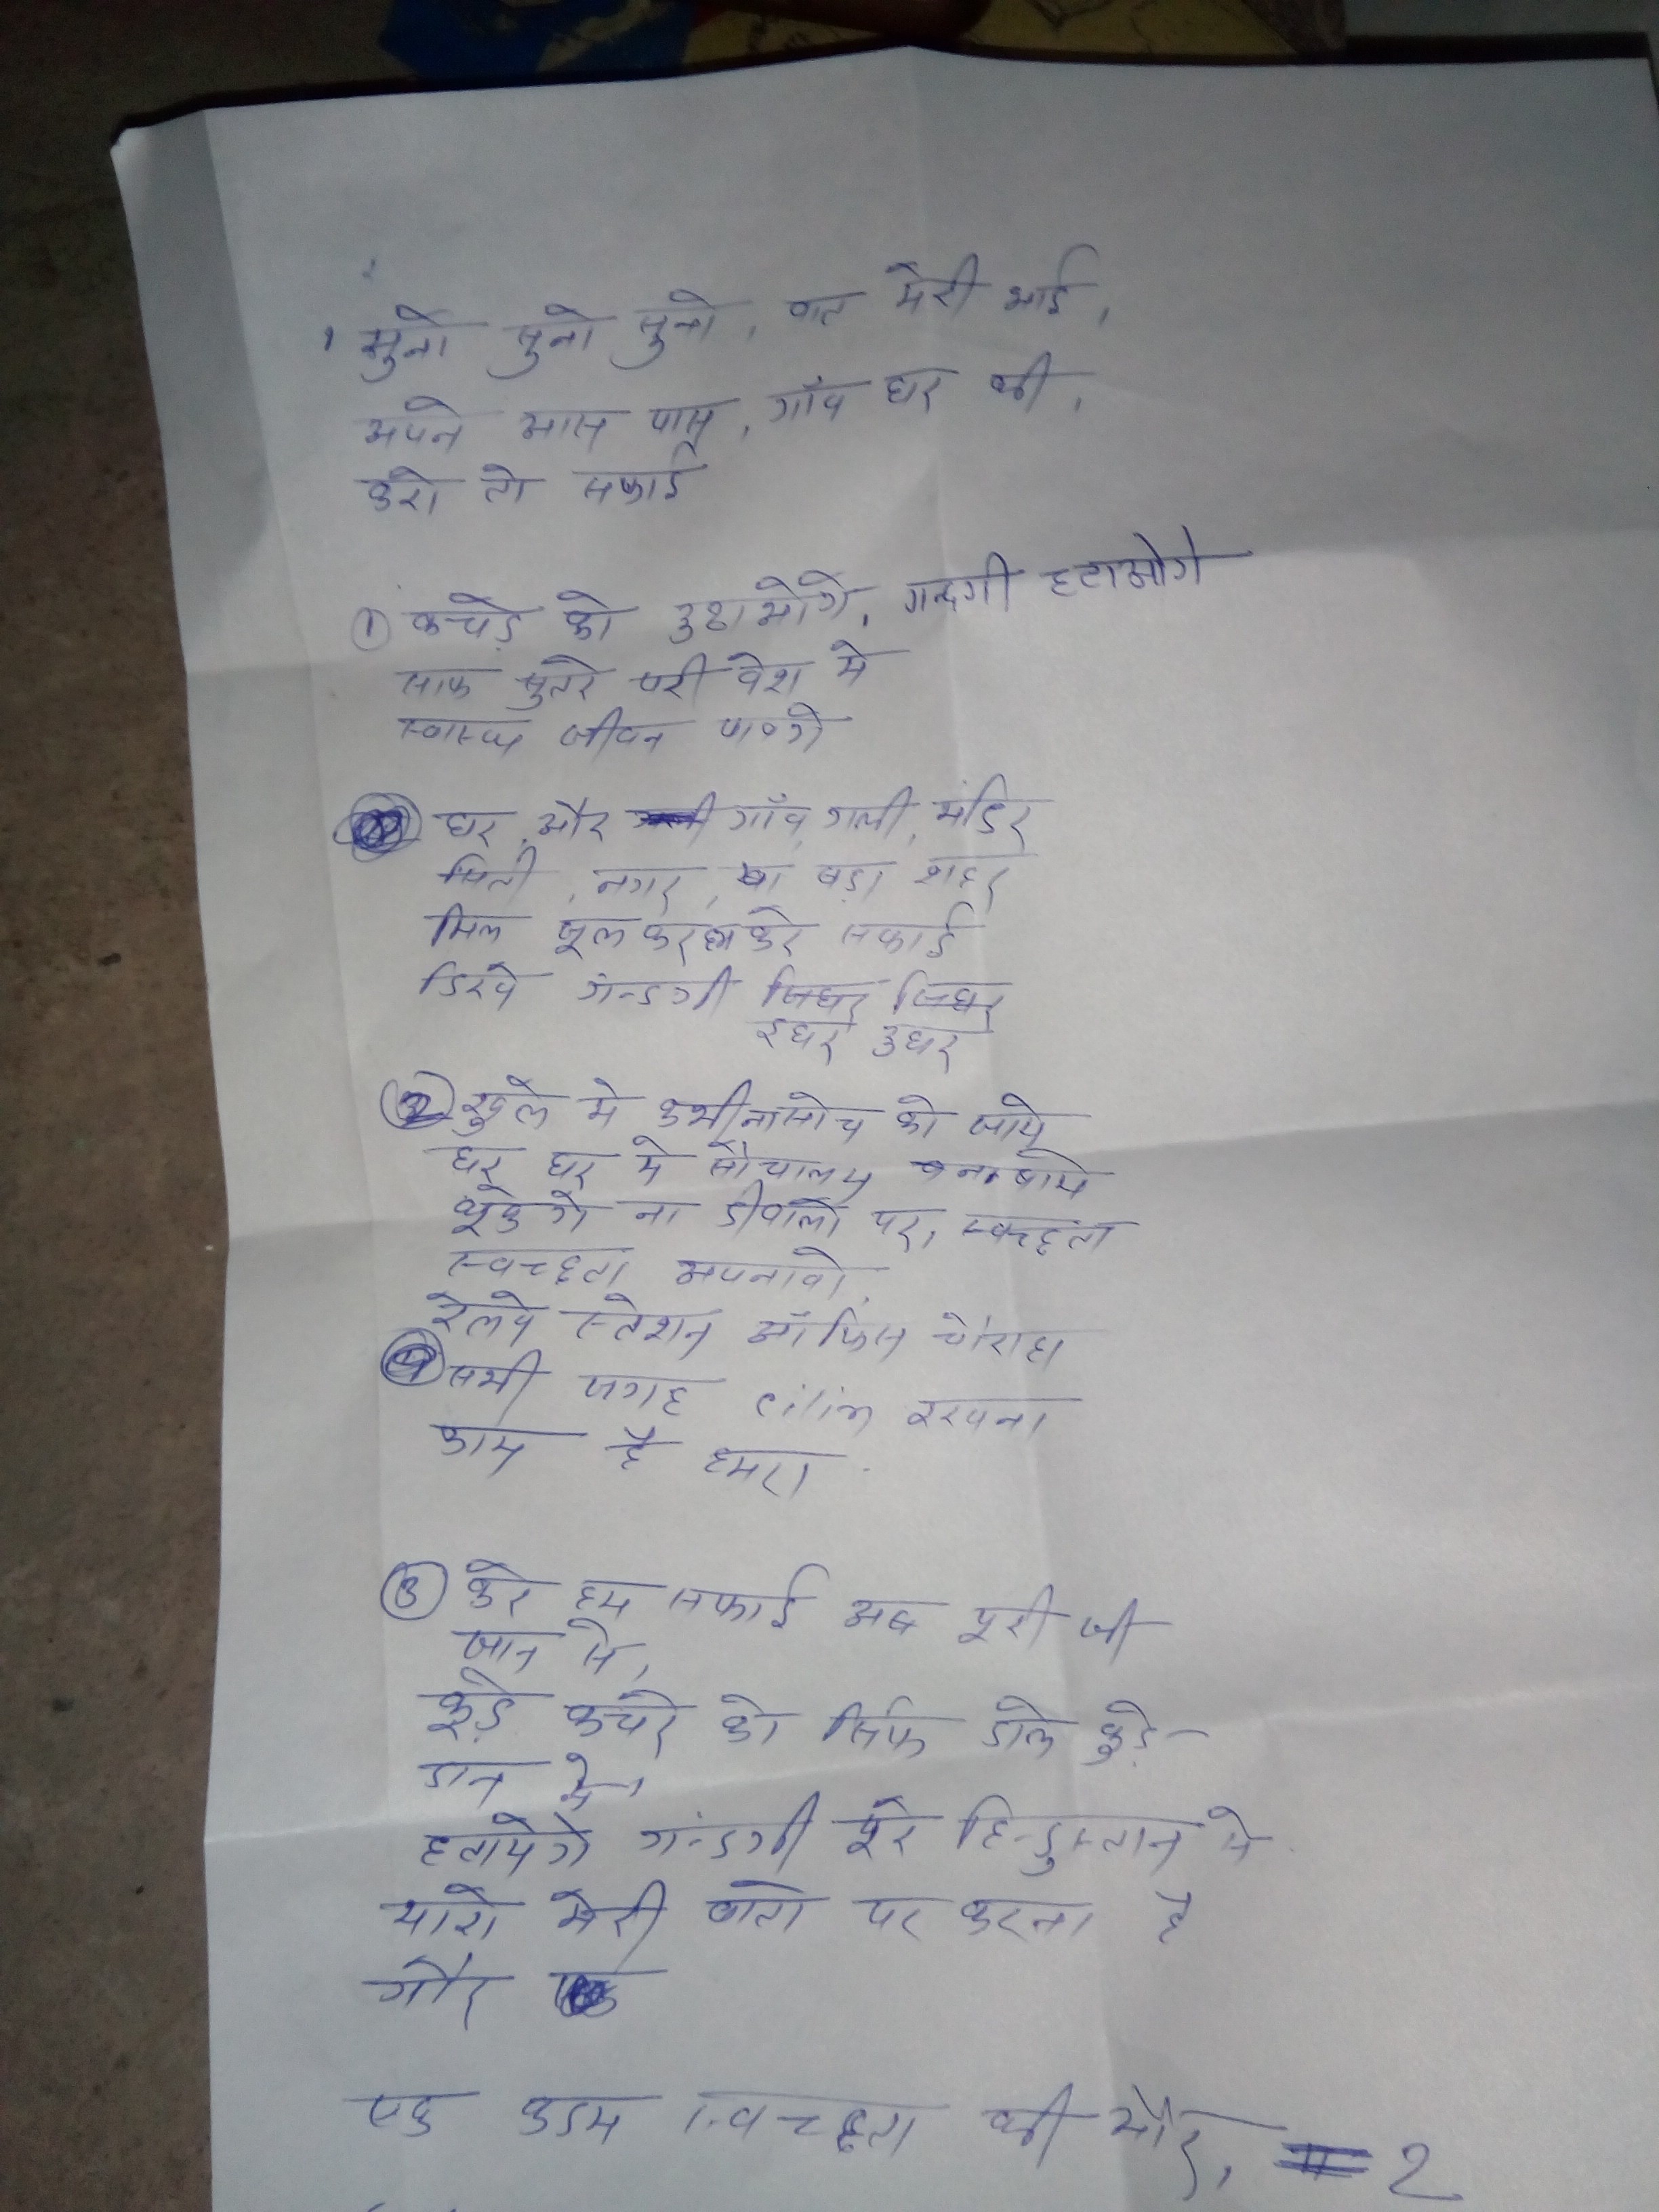 सुनो सुनो सुनो, बात मेरी भाई,
अपने आस पास, गाँव घर की,
करो तो सफाई
① कचड़े को उठाओगे, गन्दगी हटाओगे
साफ सुतरे परी वेश मे
स्वास्थ्य जीवन पाओगे
घर, और गाँव, गली, मंडिर
सिती, नगर, या बड़ा शहर
मिल जूल कर हम करे सफाई
डिखे गन्डगी जिधर जिधर
इधर उधर
② खुले मे कभी ना सोच को जाये
घर घर मे सौचालय बनबाये
थूकेगे ना डीवालो पर, स्वच्छता
स्वच्छता अपनावो,
रेलवे स्तेशन ऑफिस चौराहा
सभी जगह रखना
काम है हमरा
③ करे हम सफाई अब पूरी जी
जान से,
कूड़े कचरे को सिर्फ डाले कुड़े-
डान मे,
हतायेगे गंन्डगी पूरे हिन्डुस्तान से
यारो मेरी बातो पर करना है
गौर
एक कडम स्वच्छता की और, 2